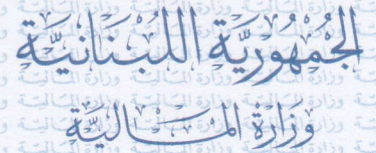 الجُمْهُورِيَّة اللُّبْنَانِيَّة
وِزَارَة المَالِيَّة